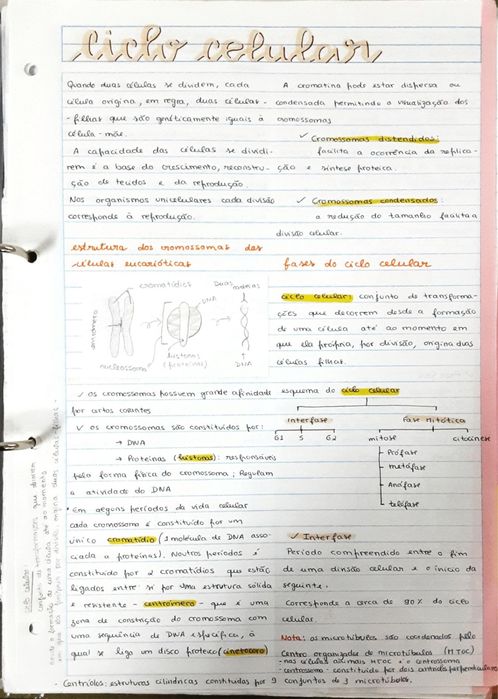 ciclo celular
Quando duas células se dividem, cada
célula origina, em regra, duas células-
-filhas que são genéticamente iguais à
célula-mãe.
A capacidade das células se dividi-
rem é a base do crescimento, reconstru-
ção de tecidos e da reprodução.
Nos organismos unicelulares cada divisão
corresponde à reprodução.
A cromatina pode estar dispersa ou
condensada permitindo a visualização dos
cromossomas
✓ Cromossomas distendidos:
facilita a ocorrência da replica-
ção e síntese proteica.
✓ Cromossomas condensados:
a redução do tamanho facilita a
divisão celular.
estrutura dos cromossomas das
células eucarióticas
cromatídios
centrómero
nucleossoma
DNA
histonas
(proteínas)
Duas
moléculas
DNA
✓ os cromossomas possuem grande afinidade
por certos corantes
✓ os cromossomas são constituídos por:
→ DNA
→ Proteínas (histonas): responsáveis
pela forma física do cromossoma; Regulam
a atividade do DNA
• Em alguns períodos da vida celular
cada cromossoma é constituído por um
único cromatídio (1 molécula de DNA asso-
ciada a proteínas). Noutros períodos é
constituído por 2 cromatídios que estão
ligados entre si por uma estrutura sólida
e resistente - centrómero - que é uma
zona de constrição do cromossoma com
uma sequência de DNA específica, à
qual se liga um disco proteico (cinetocoro)
fases do ciclo celular
ciclo celular: conjunto de transforma-
ções que decorrem desde a formação
de uma célula até ao momento em
que ela própria, por divisão, origina duas
células filhas.
esquema do ciclo celular
Interfase
Fase mitótica
G1 S G2
mitose
citocinese
Prófase
metáfase
Anáfase
telófase
✓ Interfase
Período compreendido entre o fim
de uma divisão celular e o início da
seguinte.
Corresponde a cerca de 90% do ciclo
celular.
Nota: os microtúbulos são coordenados pelo
Centro organizador de microtúbulos (MTOC)
- nas células animais MTOC é o centrossoma
- centrossoma - constituído por dois centríolos perpendiculares
- Centríolos: estruturas cilíndricas constituídas por 9 conjuntos de 3 microtúbulos.
ciclo celular:
conjunto de transformações que decorrem
desde a formação de uma célula até ao momento
em que ela própria, por divisão, origina duas células filhas.